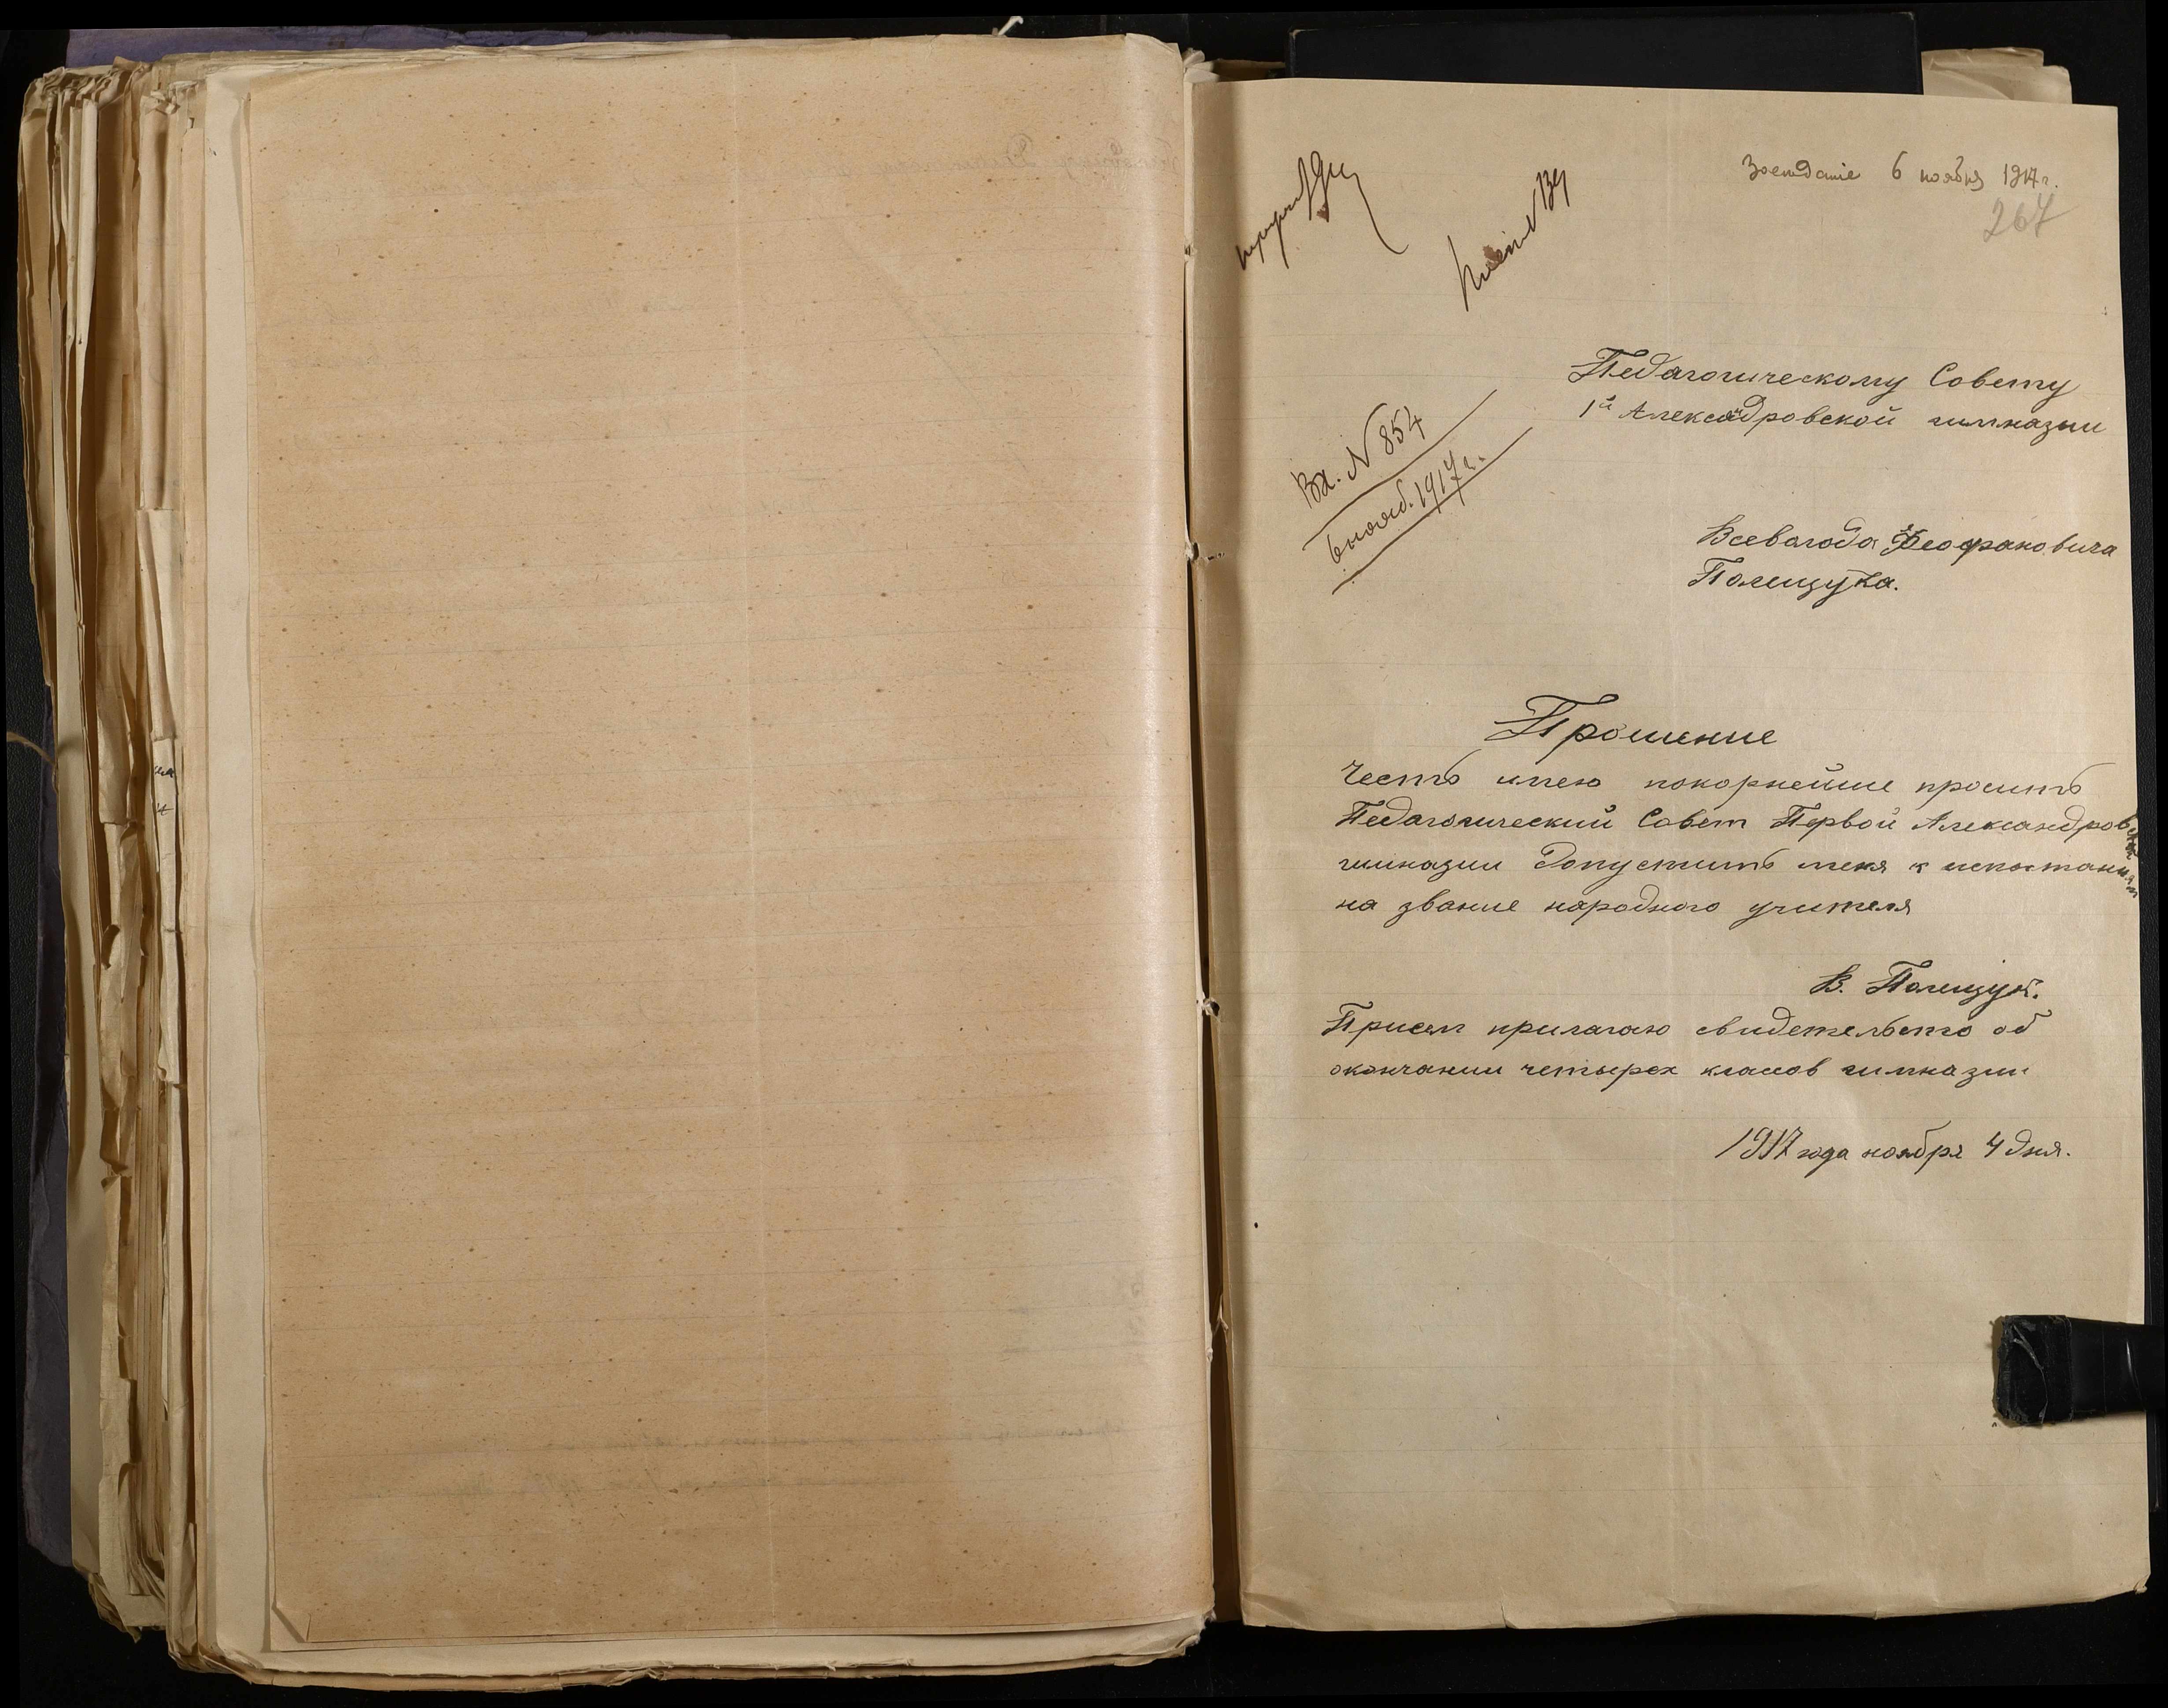 Заседание 6 ноября 1917 г.
267
Вх. N 854
6 нояб. 1917 г.
Педагогическому Совету
1й Александровской гимназии
Всевалода Феофановича
Полищука.
Прошение
Честь имею покорнейше просить
Педагогический Совет Первой Александровской
гимназии допустить меня к испытаниям
на звание народного учителя
В. Полищук.
Присем прилагаю свидетельсто об
окончании четырех класов гимназии
1917 года ноября 4 дня.